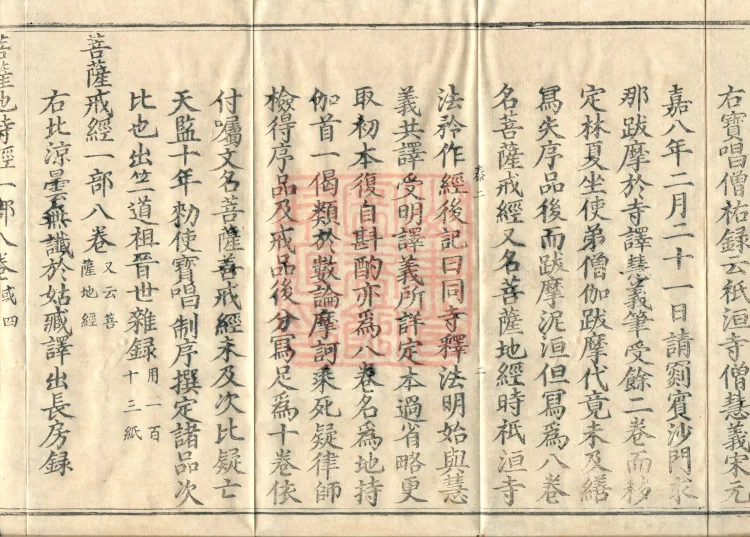 右寶唱僧祐録云祇洹寺僧慧義宋元
嘉八年二月二十一日請罽賓沙門求
那跋摩於寺譯慧義筆受餘二卷而移
定林夏坐使弟僧伽跋摩代竟未及繕
寫失序品後而跋摩泥洹但寫為八卷
名菩薩戒經又名菩薩地經時祇洹寺
二
法矜作經後記曰同寺釋法明始與慧
義共譯受明譯義所詳定本過省略更
取初本復自斟酌亦為八卷名為地持
伽首一偈類於數論摩訶乘死疑律師
檢得序品及戒品後分寫足為十卷依
付囑文名菩薩善戒經未及次比疑亡
天監十年勑使寶唱制序撰定諸品次
比也出竺道祖晉世雜録用一百十三紙
菩薩戒經一部八卷又云菩薩地經
右北涼曇無讖於姑臧譯出長房録
菩薩地持經一部八卷或四